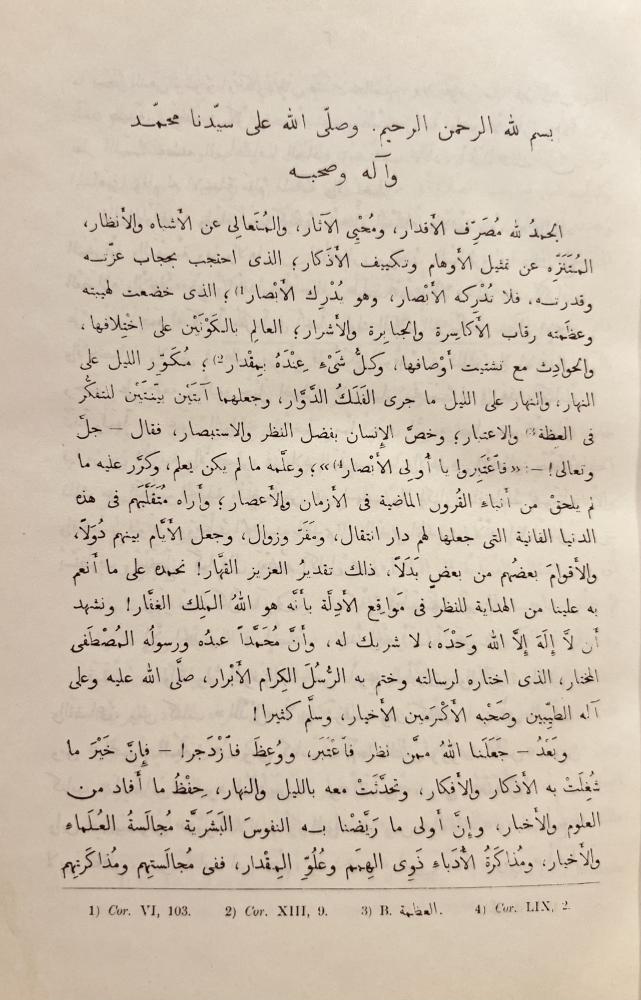 بسم لله الرحمن الرحيم. وصلّى الله على سيّدنا محمّد
وآله وصحبه
الحمدُ لله مُصَرِّف الأقدار، ومُحْيِي الآثار، والمُتَعالِي عن الأشباه والأنظار،
المُتَنَزِّه عن تمثيل الأوهام وتكييف الأذكار؛ الذى احتجب بحجاب عزّته
وقدرته، فلا تُدْرِكه الأَبْصار، وهو يُدْرِك الأَبْصار¹⁾؛ الذى خضعت لهيبته
وعظَمته رقاب الأكاسِرة والجبابِرة والأشرار؛ العالِم بالكَوْنَيْن على اخْتِلافها،
والحوادِث مع تشتيت أَوْصافها، وكلُّ شَىْءٍ عِنْدَهُ بِمِقْدار²⁾؛ مُكَوِّر الليل على
النهار، والنهار على الليل ما جرى الفَلَكُ الدَّوَّار، وجعلهما آيَتَيْن بيّنتَيْن للتفكُّر
فى العِظة³⁾ والاعتبار؛ وخصَّ الإنسان بفضل النظر والاستبصار، فقال — جلَّ
وتعالى! —: «فَٱعْتَبِروا يا أُولِى الأَبْصار⁴⁾»؛ وعلَّمه ما لم يكن يعلم، وكرَّر عليه ما
لم يلحقْ من أنباء القُرون الماضية فى الأزمان والأعصار؛ وأراه مُتَقَلَّبهم فى هذه
الدنيا الفانية التى جعلها لهم دار انتقال، ومَقَرّ وزوال، وجعل الأَيّام بينهم دُوَلاً،
والأقوامَ بعضُهم من بعضٍ بَدَلاً، ذلك تقديرُ العزيز القهّار! نحمده على ما أنعم
به علينا من الهداية للنظر فى مَواقِع الأدِلّة بأنَّه هو اللهُ المَلِك الغفَّار! ونشهد
أن لاَّ إلَهَ إلاَّ الله وَحْدَه، لا شريك له، وأنَّ مُحَمَّداً عبدُه ورسولُه المُصْطَفى
المختار، الذى اختاره لرسالته وختم به الرُّسُلَ الكِرام الأبْرار، صلَّى الله عليه وعلى
آله الطيِّبين وصَحْبه الأَكْرَمين الأخيار، وسلَّم كثيرا!
وبَعْدُ — جَعَلَنا اللهُ ممَّن نظر فٱعْتَبَر، ووُعِظَ فٱزْدَجر! — فإنَّ خَيْرَ ما
شُغِلَتْ به الأذكار والأفكار، وتحدَّثَتْ معه بالليل والنهار، حِفْظُ ما أفاد من
العلوم والأخبار، وإنَّ أولى ما رَيَّضْنا به النفوسَ البَشَرِيَّة مُجالَسةُ العُلَماء
والأخيار، ومُذاكَرةُ الأُدَباء ذَوِى الهِمَم وعُلُوِّ المِقْدار، ففى مُجالَستهم ومُذاكَرتهم
1) Cor. VI, 103. 2) Cor. XIII, 9. 3) B. العظمة. 4) Cor. LIX, 2.